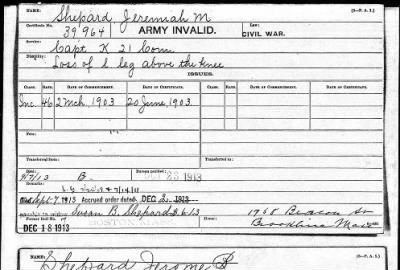 NAME: Shepard Jeremiah M (3—P. A. I.)
Certificate No. 39964 ARMY INVALID. Law: CIVIL WAR.
Service: Capt K 21 Conn
Disability: Loss of L leg above the knee
ISSUES.
CLASS. RATE. DATE OF COMMENCEMENT. DATE OF CERTIFICATE. CLASS. RATE. DATE OF COMMENCEMENT. DATE OF CERTIFICATE.
Inc. 46 2 Mch, 1903 20 June, 1903.
Fees:
Transferred from Transferred to
Died: 9/7/13 B. 1913
Remarks:
Sept. 7, 1913 Accrued order dated DEC 2 1913
Susan B. Shepard 1968 Beacon St
Former Roll No. Brookline Mass
DEC 18 1913
NAME: (3—P. A. I.)
Shepard Jerome B